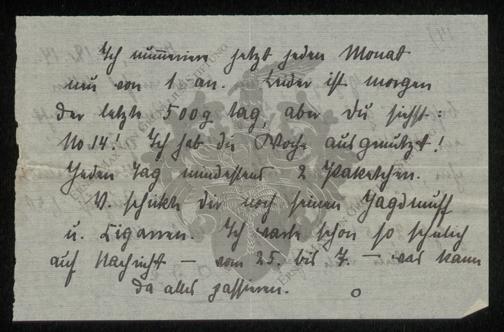 Ich numeriere jetzt jeden Monat
neu von 1 an. Leider ist morgen
der letzte 500 g tag, aber Du siehst:
No 14! Ich hab die Woche ausgenützt!
Jeden Tag mindestens 2 Paketchen.
V. schickt Dir noch seinen Jagdmuff
u. Cigarren. Ich warte schon so
auf Nachricht — vom 25. bis 7. — was kann
da alles passieren.